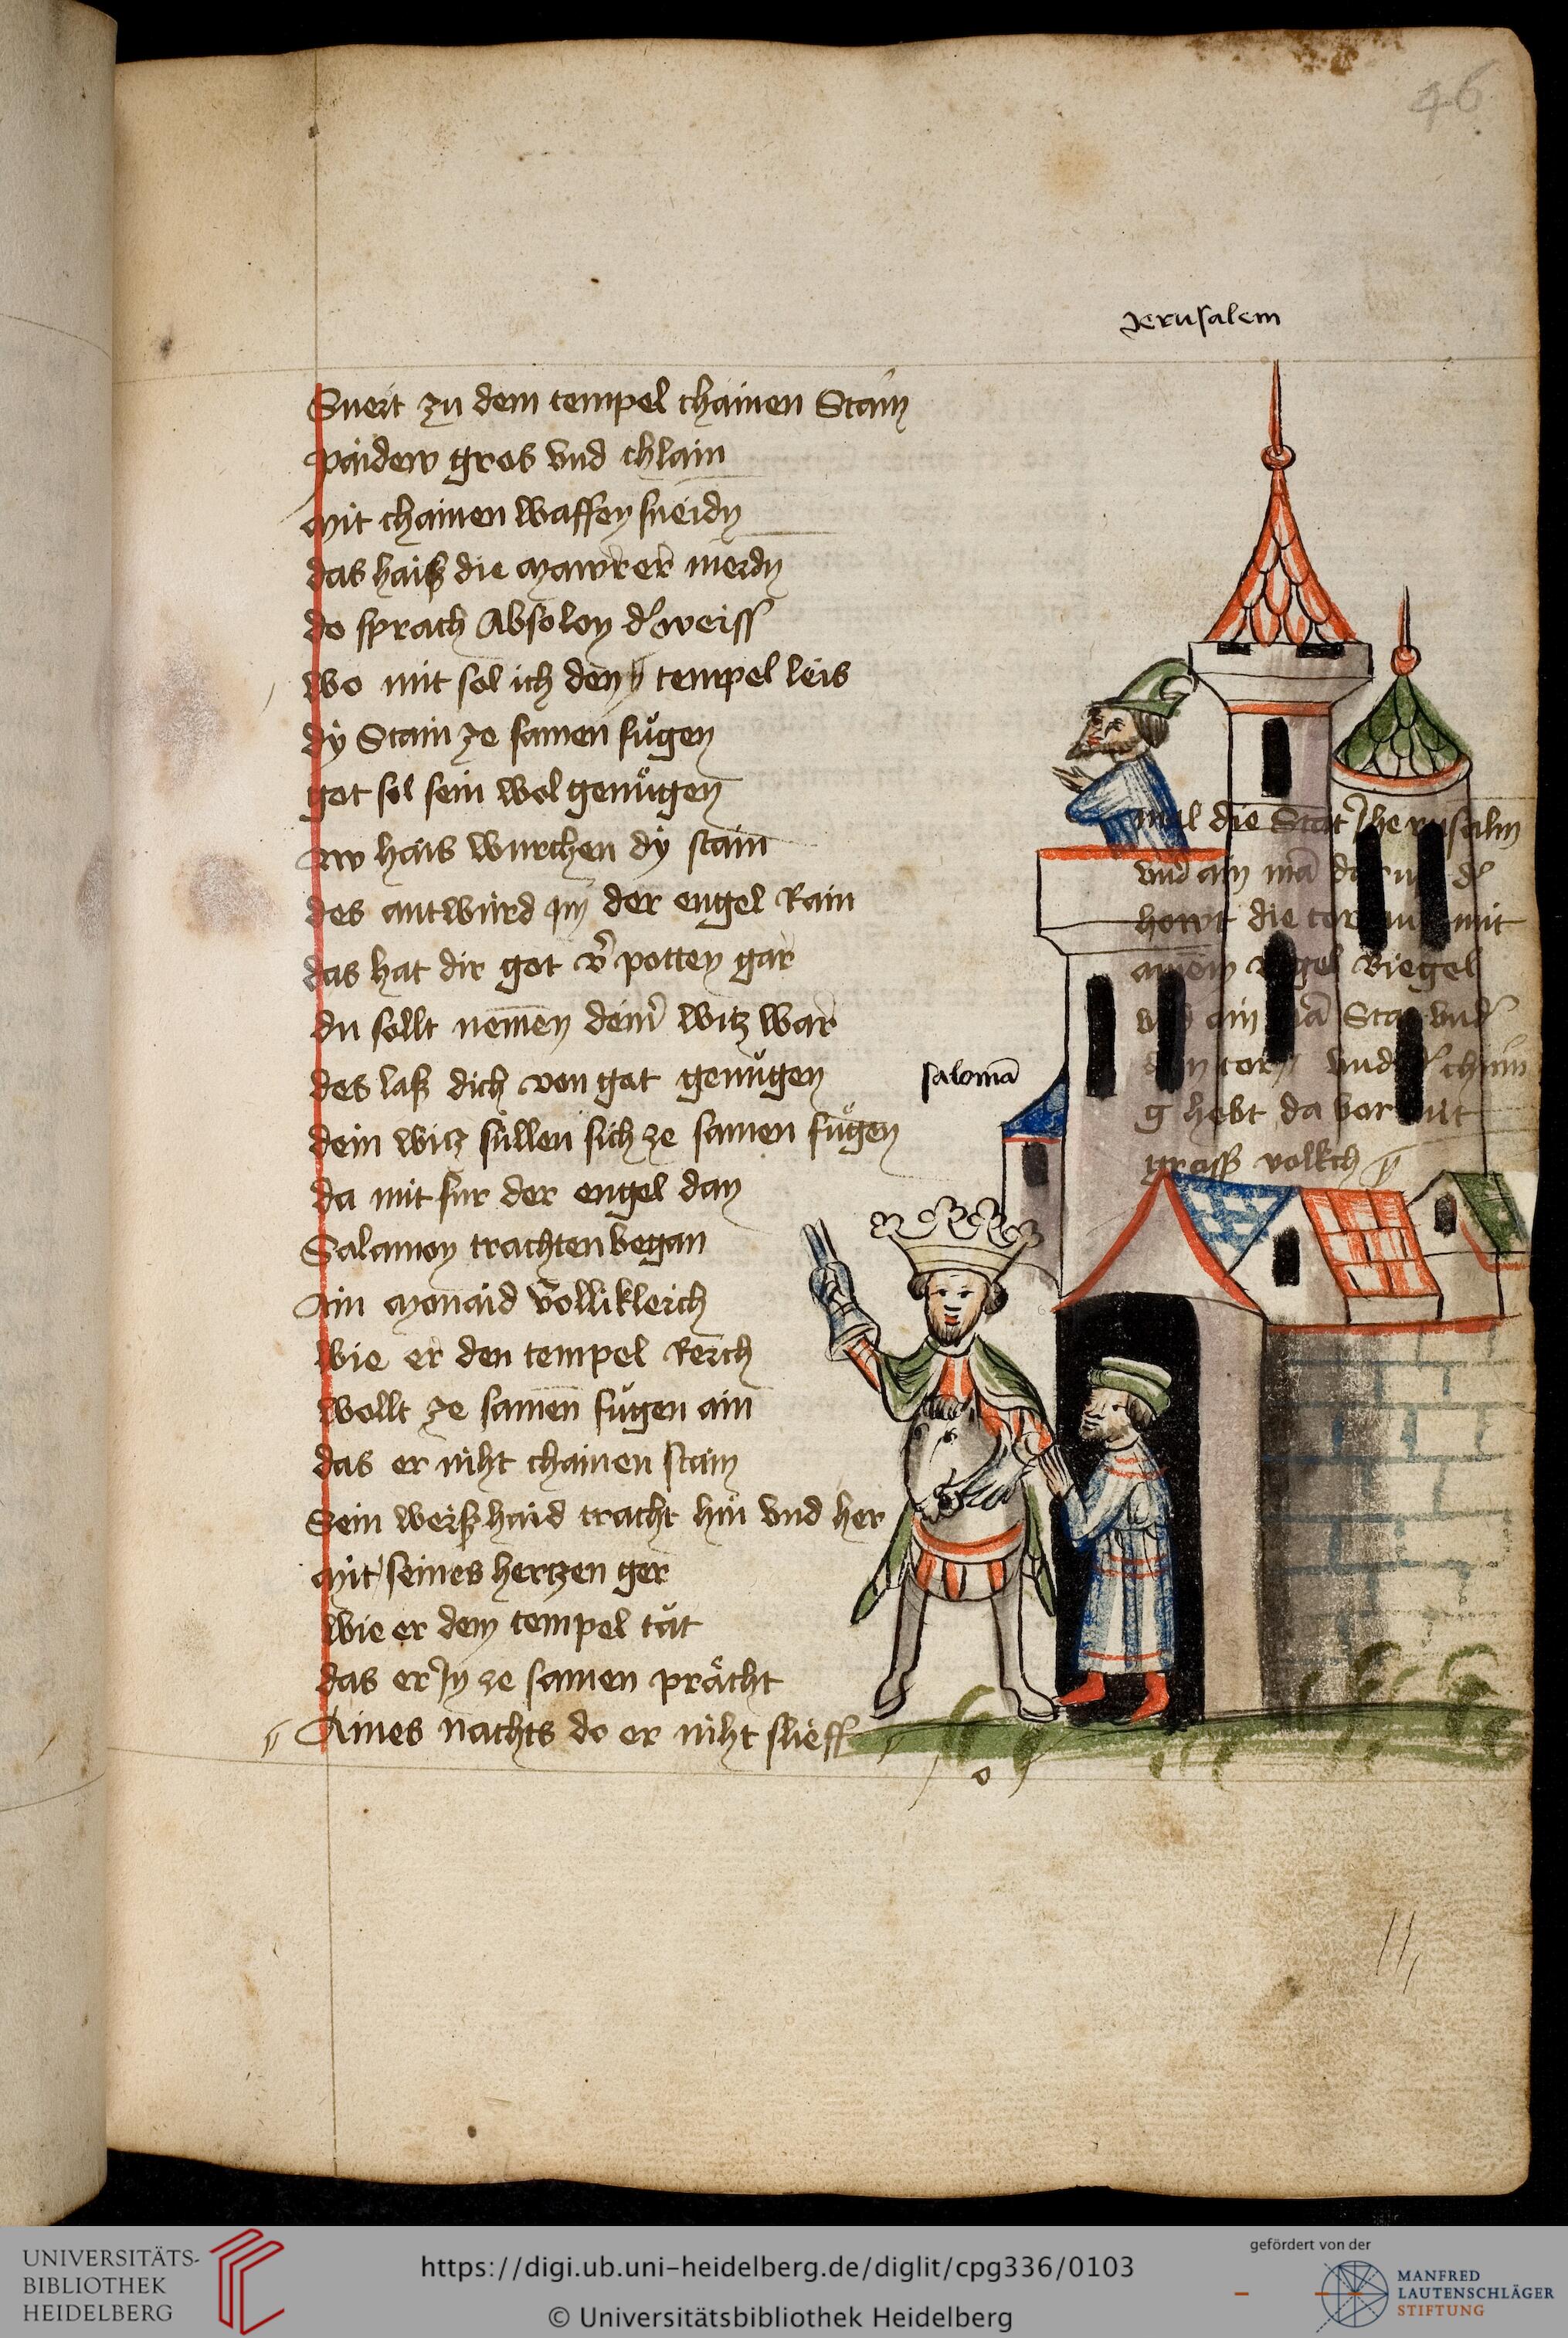 46
Jerusalem
Sneit zu dem tempel chainen Stain
paidew gros vnd chlain
mit chainen waffen sneidn
das haiß die mawrer meidn
do sprach Absolon d' weiss
wo mit sol ich den tempel leis
dÿ Stain ze samen fügen
got sol sein wol genügen
hais wurchen dÿ stain
des antwurd im der engel Rain
das hat dir got v'potten gar
du sollt nemen deinr witz war
des laß dich von got genügen
dein witz süllen sich ze samen fügen
da mit fur der engel dan
Salamon trachten began
Ain monaid vollikleich
wie er den tempel Reich
wollt ze samen fugen ain
das er niht chainen stain
Sein weißhaid tracht hin vnd her
mit seines hertzen ger
wie er dem tempel tät
das er Jn ze samen prächt
Aines nachts do er niht slieff
mal die Stat Jherusalm
vnd ain mā d'
howt die mit
ainem Riegel
ain Sta vnd'
vnd
hebt da vor
gross volkch
salomā
UNIVERSITÄTS-
BIBLIOTHEK
HEIDELBERG
https://digi.ub.uni-heidelberg.de/diglit/cpg336/0103
© Universitätsbibliothek Heidelberg
gefördert von der
MANFRED
LAUTENSCHLÄGER
STIFTUNG